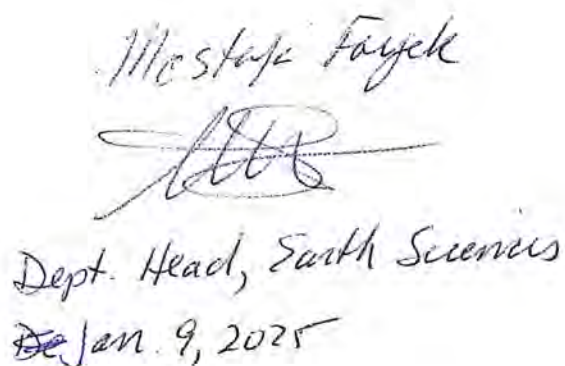 Mostafa Fayek
Dept. Head, Earth Sciences
Jan. 9, 2025